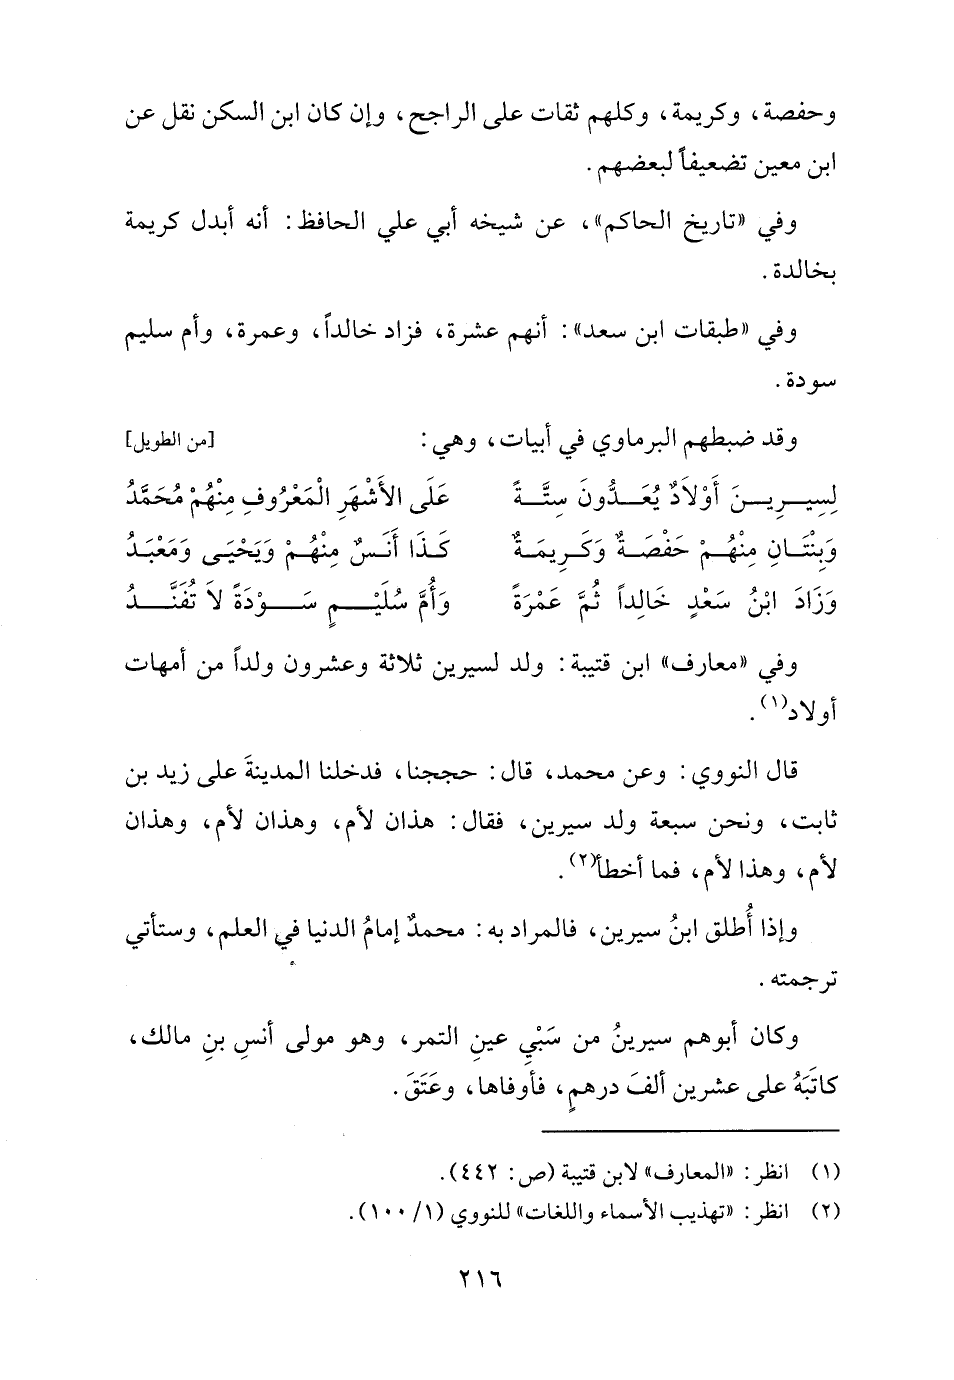 وحفصة، وكريمة، وكلهم ثقات على الراجح، وإن كان ابن السكن نقل عن
ابن معين تضعيفاً لبعضهم.
وفي «تاريخ الحاكم»، عن شيخه أبي علي الحافظ: أنه أبدل كريمة
بخالدة.
وفي «طبقات ابن سعد»: أنهم عشرة، فزاد خالداً، وعمرة، وأم سليم
سودة.
وقد ضبطهم البرماوي في أبيات، وهي: [من الطويل]
لِسِيرِينَ أَوْلَادٌ يُعَدُّونَ سِتَّةً عَلَى الأَشْهَرِ الْمَعْرُوفِ مِنْهُمْ مُحَمَّدُ
وَبِنْتَانِ مِنْهُمْ حَفْصَةٌ وَكَرِيمَةٌ كَذَا أَنَسٌ مِنْهُمْ وَيَحْيَى وَمَعْبَدُ
وَزَادَ ابْنُ سَعْدٍ خَالِداً ثُمَّ عَمْرَةً وَأُمَّ سُلَيْمٍ سَوْدَةً لاَ تُفَنَّدُ
وفي «معارف» ابن قتيبة: ولد لسيرين ثلاثة وعشرون ولداً من أمهات
أولاد(١).
قال النووي: وعن محمد، قال: حججنا، فدخلنا المدينةَ على زيد بن
ثابت، ونحن سبعة ولد سيرين، فقال: هذان لأم، وهذان لأم، وهذان
لأم، وهذا لأم، فما أخطأ(٢).
وإذا أُطلق ابنُ سيرين، فالمراد به: محمدٌ إمامُ الدنيا في العلم، وستأتي
ترجمته.
وكان أبوهم سيرينُ من سَبْيِ عينِ التمر، وهو مولى أنسِ بنِ مالك،
كاتَبَهُ على عشرين ألفَ درهمٍ، فأوفاها، وعَتَقَ.
(١) انظر: «المعارف» لابن قتيبة (ص: ٤٤٢).
(٢) انظر: «تهذيب الأسماء واللغات» للنووي (١/ ١٠٠).
٢١٦